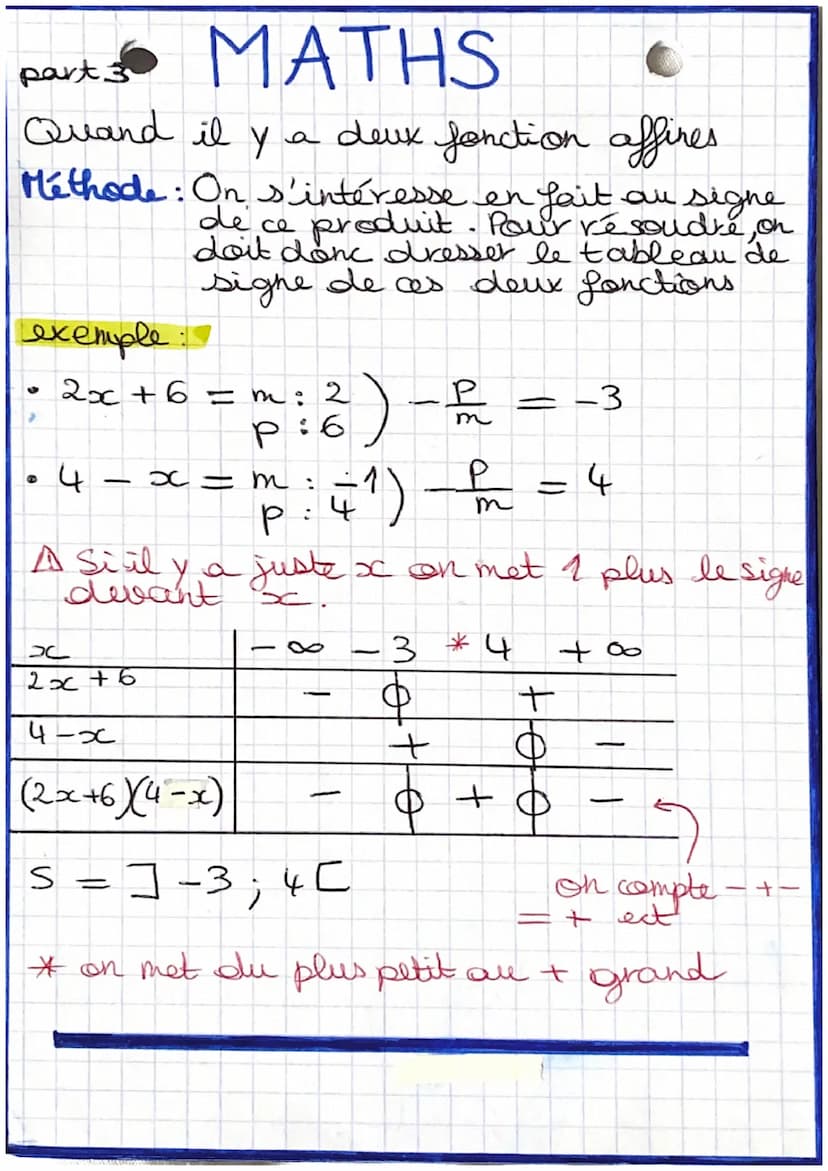 part 3 MATHS
Quand il y a deux fonction affines
Méthode : On s'intéresse en fait au signe
de ce produit. Pour résoudre, on
doit donc dresser le tableau de
signe de ces deux fonctions
exemple :
• 2x + 6 = m : 2 ) - p/m = -3
p : 6
• 4 - x = m : -1 ) - p/m = 4
p : 4
⚠ Si il y a juste x on met 1 plus le signe
devant x.
x | -∞ -3 * 4 +∞
2x + 6 | - 0 +
4 - x | + 0 -
(2x+6)(4-x) | - 0 + 0 -
S = ]-3 ; 4[
on compte - + -
= + ect
* on met du plus petit au + grand